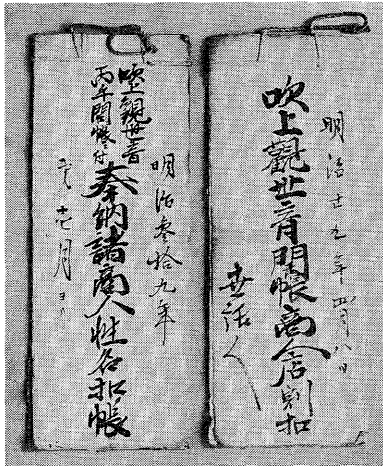 明治十九年四月八日
吹上觀世音開帳商人店割扣
世話人
明治叁拾九年
吹上観世音
丙午開帳ニ付
奉納諸商人性名扣帳
月ヨリ